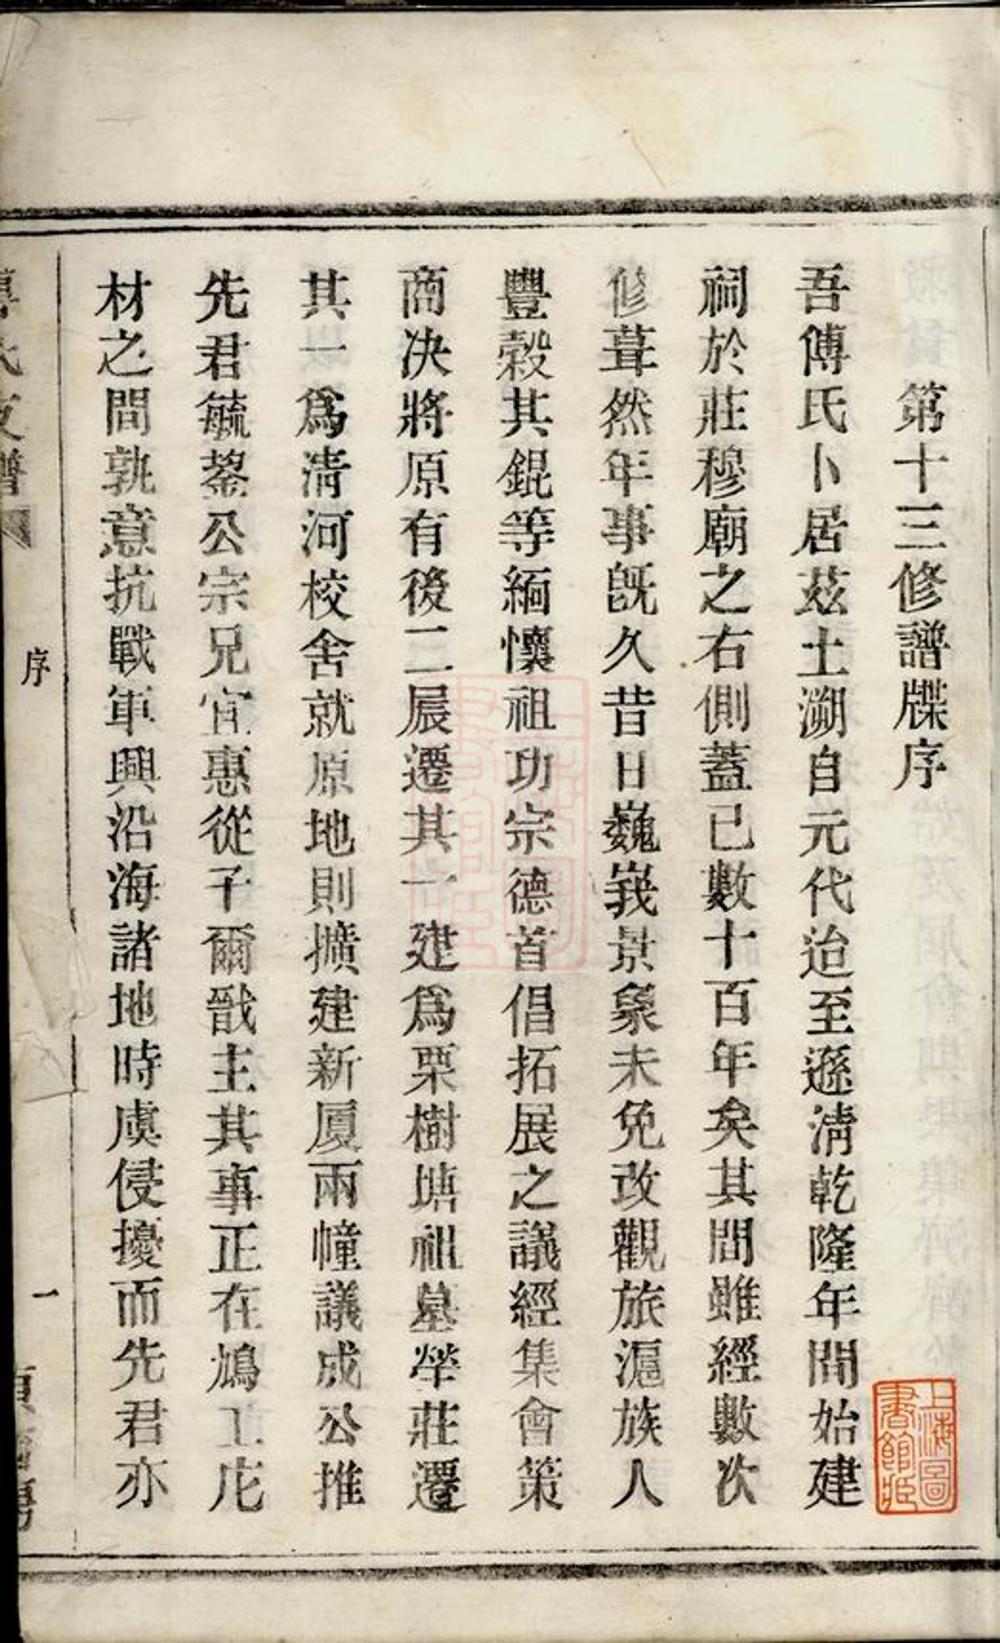 第十三修譜牒序
吾傅氏卜居茲土溯自元代迨至遜淸乾隆年間始建
祠於莊穆廟之右側蓋已數十百年矣其間雖經數次
修葺然年事旣久昔日巍峩景象未免改觀旅滬族人
豐穀其錕等緬懷祖功宗德首倡拓展之議經集會策
商决將原有後二𡱈遷其一建爲栗樹塘祖墓塋莊遷
其一爲淸河校舍就原地則擴建新厦兩幢議成公推
先君毓鋆公宗兄宜惠從子爾戩主其事正在鳩工庀
材之間孰意抗戰軍興沿海諸地時虞侵擾而先君亦
傅氏支譜
序
一
上海圖書館藏